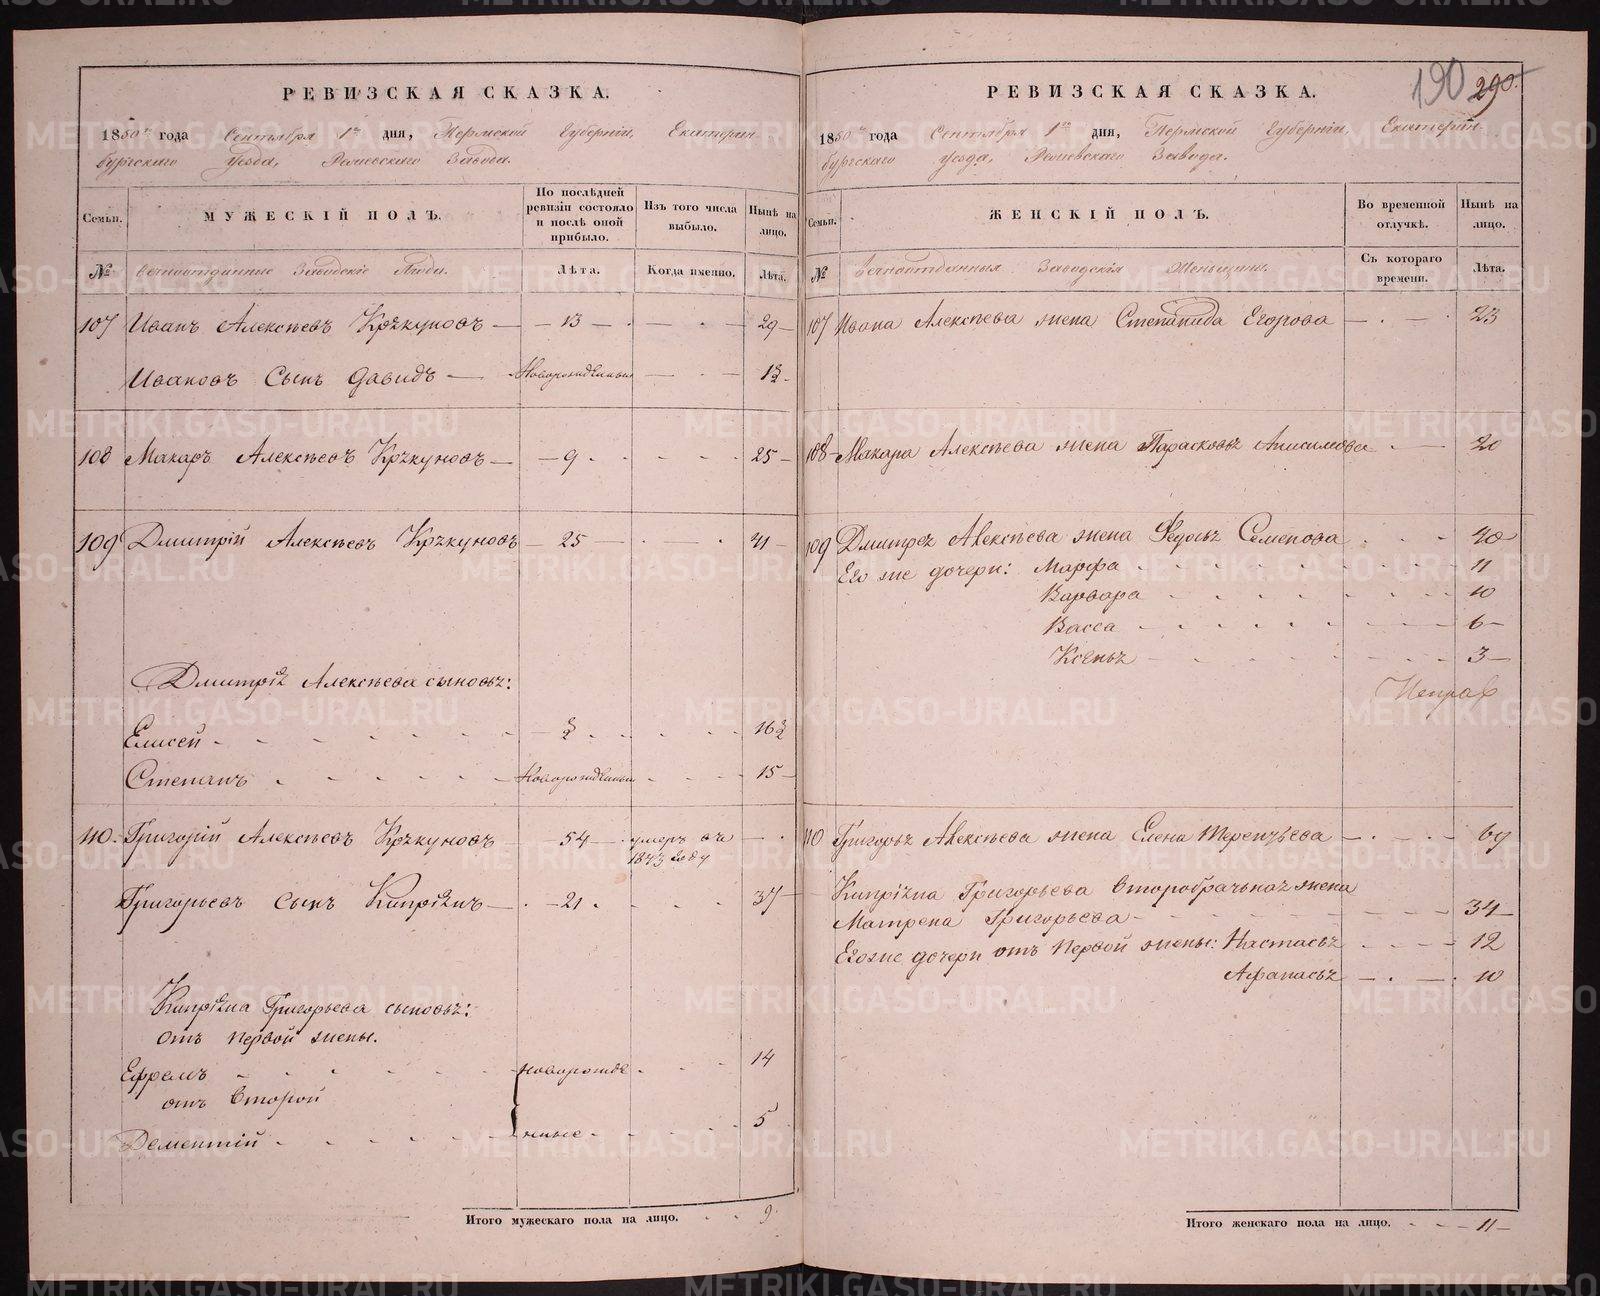 190 290.
РЕВИЗСКАЯ СКАЗКА.
1850го года Сентября 1го дня, Пермской Губернiи, Екатерин
бургскаго уезда, Завода.
Семьи. МУЖЕСКIЙ ПОЛЪ. По послѣдней ревизiи состояло и послѣ оной прибыло. Изъ того числа выбыло. Нынѣ на лицо.
№ Вечноотданные Заводскiе Люди. Лѣта. Когда именно. Лѣта.
107 Иванъ Алексѣевъ Кркуновъ — 13 — 29
Ивановъ Сынъ Давидъ — Новорожденный — 1½
108 Макаръ Алексѣевъ Кркуновъ — 9 — 25
109 Дмитрiй Алексѣевъ Кркуновъ — 25 — 41
Дмитрiя Алексѣева сыновья:
Елисей ½ 16½
Степанъ Новорожденный 15
110. Григорiй Алексѣевъ Кркуновъ — 54 — умеръ въ
1843 году
Григорьевъ сынъ Кипрiянъ — 21 37
Кипрiяна Григорьева сыновья:
отъ первой жены.
Ефремъ новорожде 14
отъ Второй
Дементiй нные 5
Итого мужескаго пола на лицо. 9
РЕВИЗСКАЯ СКАЗКА.
1850го года Сентября 1го дня, Пермской Губернiи, Екатерин
бургскаго уезда, Завода.
Семьи. ЖЕНСКIЙ ПОЛЪ. Во временной отлучкѣ. Нынѣ на лицо.
№ Вечноотданныя Заводскiя Женщины. Съ котораго времени. Лѣта.
107 Ивана Алексѣева жена Степанида Егорова — 23
108 Макара Алексѣева жена Парасковья Анисимова — 20
109 Дмитрея Алексѣева жена Федосья Семенова 40
Его же дочери: Марфа 11
Варвара 10
Васса 6
Ксенья 3
110 Григорья Алексѣева жена Елена Терентьева — 69
Кипрiяна Григорьева Второбрачьная жена
Матрена Григорьева 34
Его же дочери отъ Первой жены: Настасья 12
Афанасья 10
Итого женскаго пола на лицо. 11